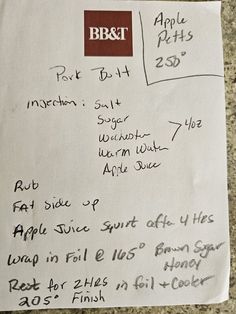 BB&T
Apple
Petts
250°
Pork Butt
injection: Salt
Sugar
Worchester
Warm Water
Apple Juice
> 4oz
Rub
FAT side up
Apple Juice Squirt after 4 Hrs
Wrap in Foil @ 165° Brown Sugar
Honey
Rest for 2 HRS in foil + Cooler
205° Finish